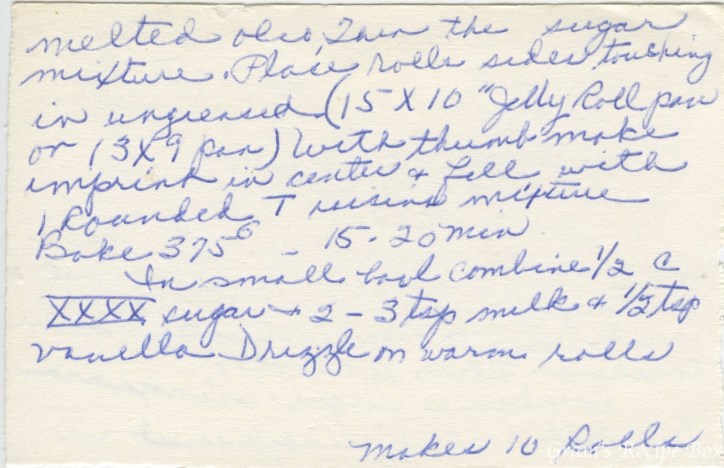 melted oleo, then the sugar
mixture. Place rolls sides touching
in ungreased (15 X 10 "Jelly Roll pan
or 13X9 pan) With thumb make
imprint in center & fill with
1 Rounded T raisin mixture
Bake 375° - 15-20 min
In small bowl combine 1/2 c
XXXX sugar + 2-3 tsp milk & 1/2 tsp
vanilla Drizzle on warm rolls
Makes 10 Rolls
Gram's Recipe Box